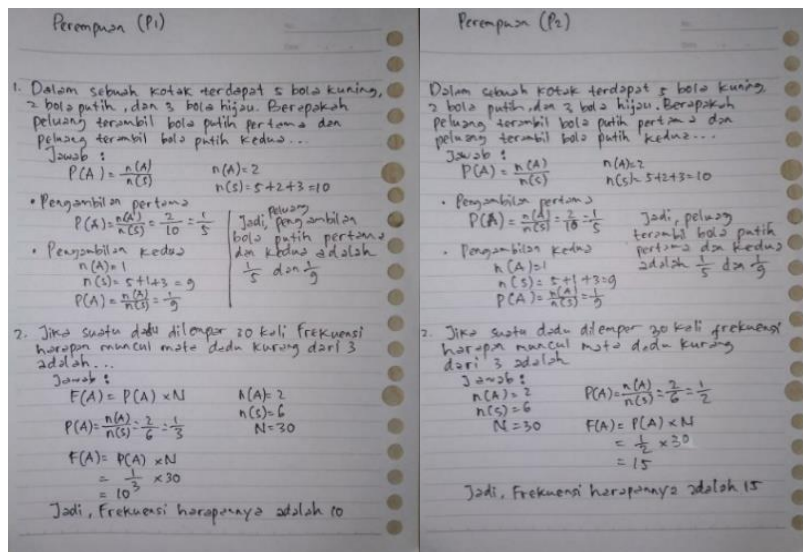 Perempuan (P1)
1. Dalam sebuah kotak terdapat 5 bola kuning,
2 bola putih, dan 3 bola hijau. Berapakah
peluang terambil bola putih pertama dan
peluang terambil bola putih kedua...
Jawab :
P(A) = n(A)/n(S)
n(A) = 2
n(S) = 5+2+3 = 10
• Pengambilan pertama
P(A) = n(A)/n(S) = 2/10 = 1/5
• Pengambilan kedua
n(A) = 1
n(S) = 5+1+3 = 9
P(A) = n(A)/n(S) = 1/9
peluang
Jadi, pengambilan
bola putih pertama
dan kedua adalah
1/5 dan 1/9
2. Jika suatu dadu dilempar 30 kali frekuensi
harapan muncul mata dadu kurang dari 3
adalah...
Jawab :
F(A) = P(A) × N
P(A) = n(A)/n(S) = 2/6 = 1/3
n(A) = 2
n(S) = 6
N = 30
F(A) = P(A) × N
= 1/3 × 30
= 10
Jadi, Frekuensi harapannya adalah 10
Perempuan (P2)
Dalam sebuah kotak terdapat 5 bola kuning
2 bola putih, dan 3 bola hijau. Berapakah
peluang terambil bola putih pertama dan
peluang terambil bola putih kedua...
Jawab :
P(A) = n(A)/n(S)
n(A) = 2
n(S) = 5+2+3 = 10
• Pengambilan pertama
P(A) = n(A)/n(S) = 2/10 = 1/5
• Pengambilan kedua
n(A) = 1
n(S) = 5+1+3 = 9
P(A) = n(A)/n(S) = 1/9
Jadi, peluang
terambil bola putih
pertama dan kedua
adalah 1/5 dan 1/9
2. Jika suatu dadu dilempar 30 kali frekuensi
harapan muncul mata dadu kurang
dari 3 adalah
Jawab :
n(A) = 2
n(S) = 6
N = 30
P(A) = n(A)/n(S) = 2/6 = 1/2
F(A) = P(A) × N
= 1/2 × 30
= 15
Jadi, Frekuensi harapannya adalah 15